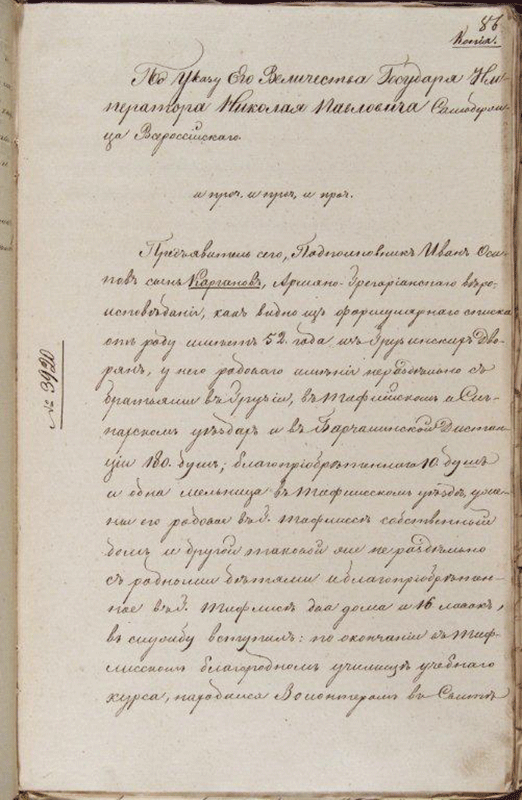 86
Копія.
По Указу Его Величества Государя Им-
ператора Николая Павловича Самодерж-
ца Всероссійскаго.
и проч. и проч. и проч.
Предъявитель сего, Подполковникъ Иванъ Оси-
повъ сынъ Каргановъ, Армяно-Грегоріанскаго вѣро-
исповѣданія, какъ видно изъ формулярнаго списка
отъ роду имѣетъ 52. года изъ Грузинскихъ Дво-
рянъ, у него родоваго имѣнія нераздѣльно съ
братьями въ Грузіи, въ Тифлисскомъ и Сиг-
нахскомъ уѣздахъ и въ Борчалинской Дистан-
ціи 180. душъ; благопріобрѣтеннаго 10. душъ
и одна мельница въ Тифлисскомъ уѣздѣ,
его родовое въ Г. Тифлисѣ собственный
домъ и другой таковой же нераздѣльно
съ родными братьями и благопріобрѣтен-
ное въ Г. Тифлисѣ два дома и 16 лавокъ,
въ службу вступилъ: по окончаніи въ Тиф-
лисскомъ благородномъ училищѣ учебнаго
курса, Волонтеромъ въ
№ 3920